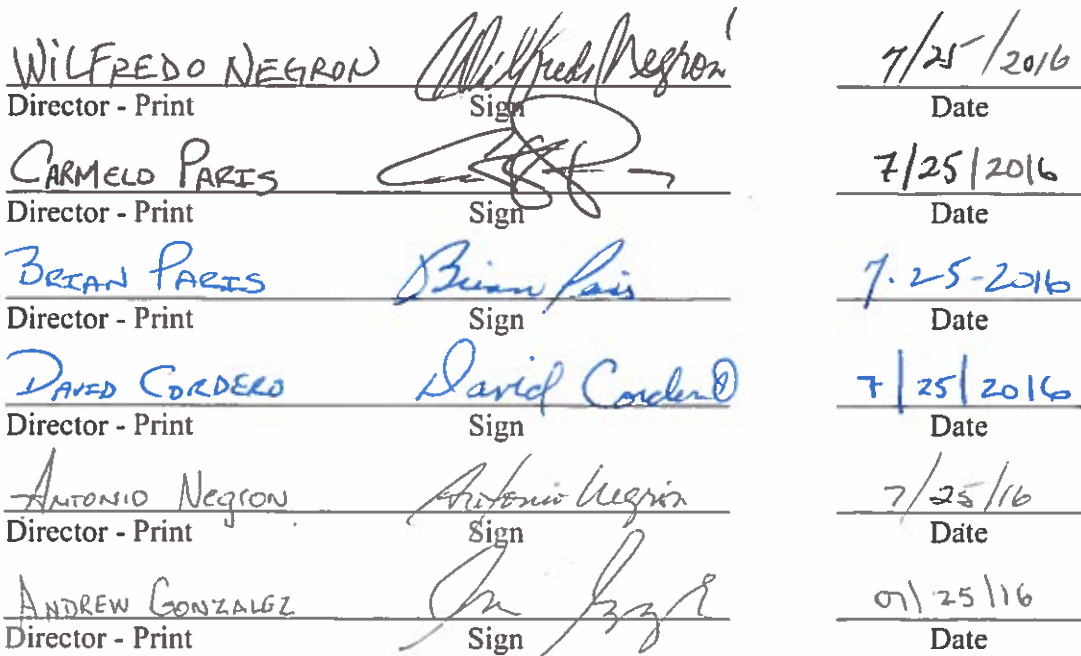 WILFREDO NEGRON Wilfredo Negrón 7/25/2016
Director - Print Sign Date
CARMELO PARIS 7/25/2016
Director - Print Sign Date
BRIAN PARIS Brian Paris 7-25-2016
Director - Print Sign Date
DAVID CORDERO David Cordero 7/25/2016
Director - Print Sign Date
ANTONIO NEGRON Antonio Negron 7/25/16
Director - Print Sign Date
ANDREW GONZALEZ 07/25/16
Director - Print Sign Date